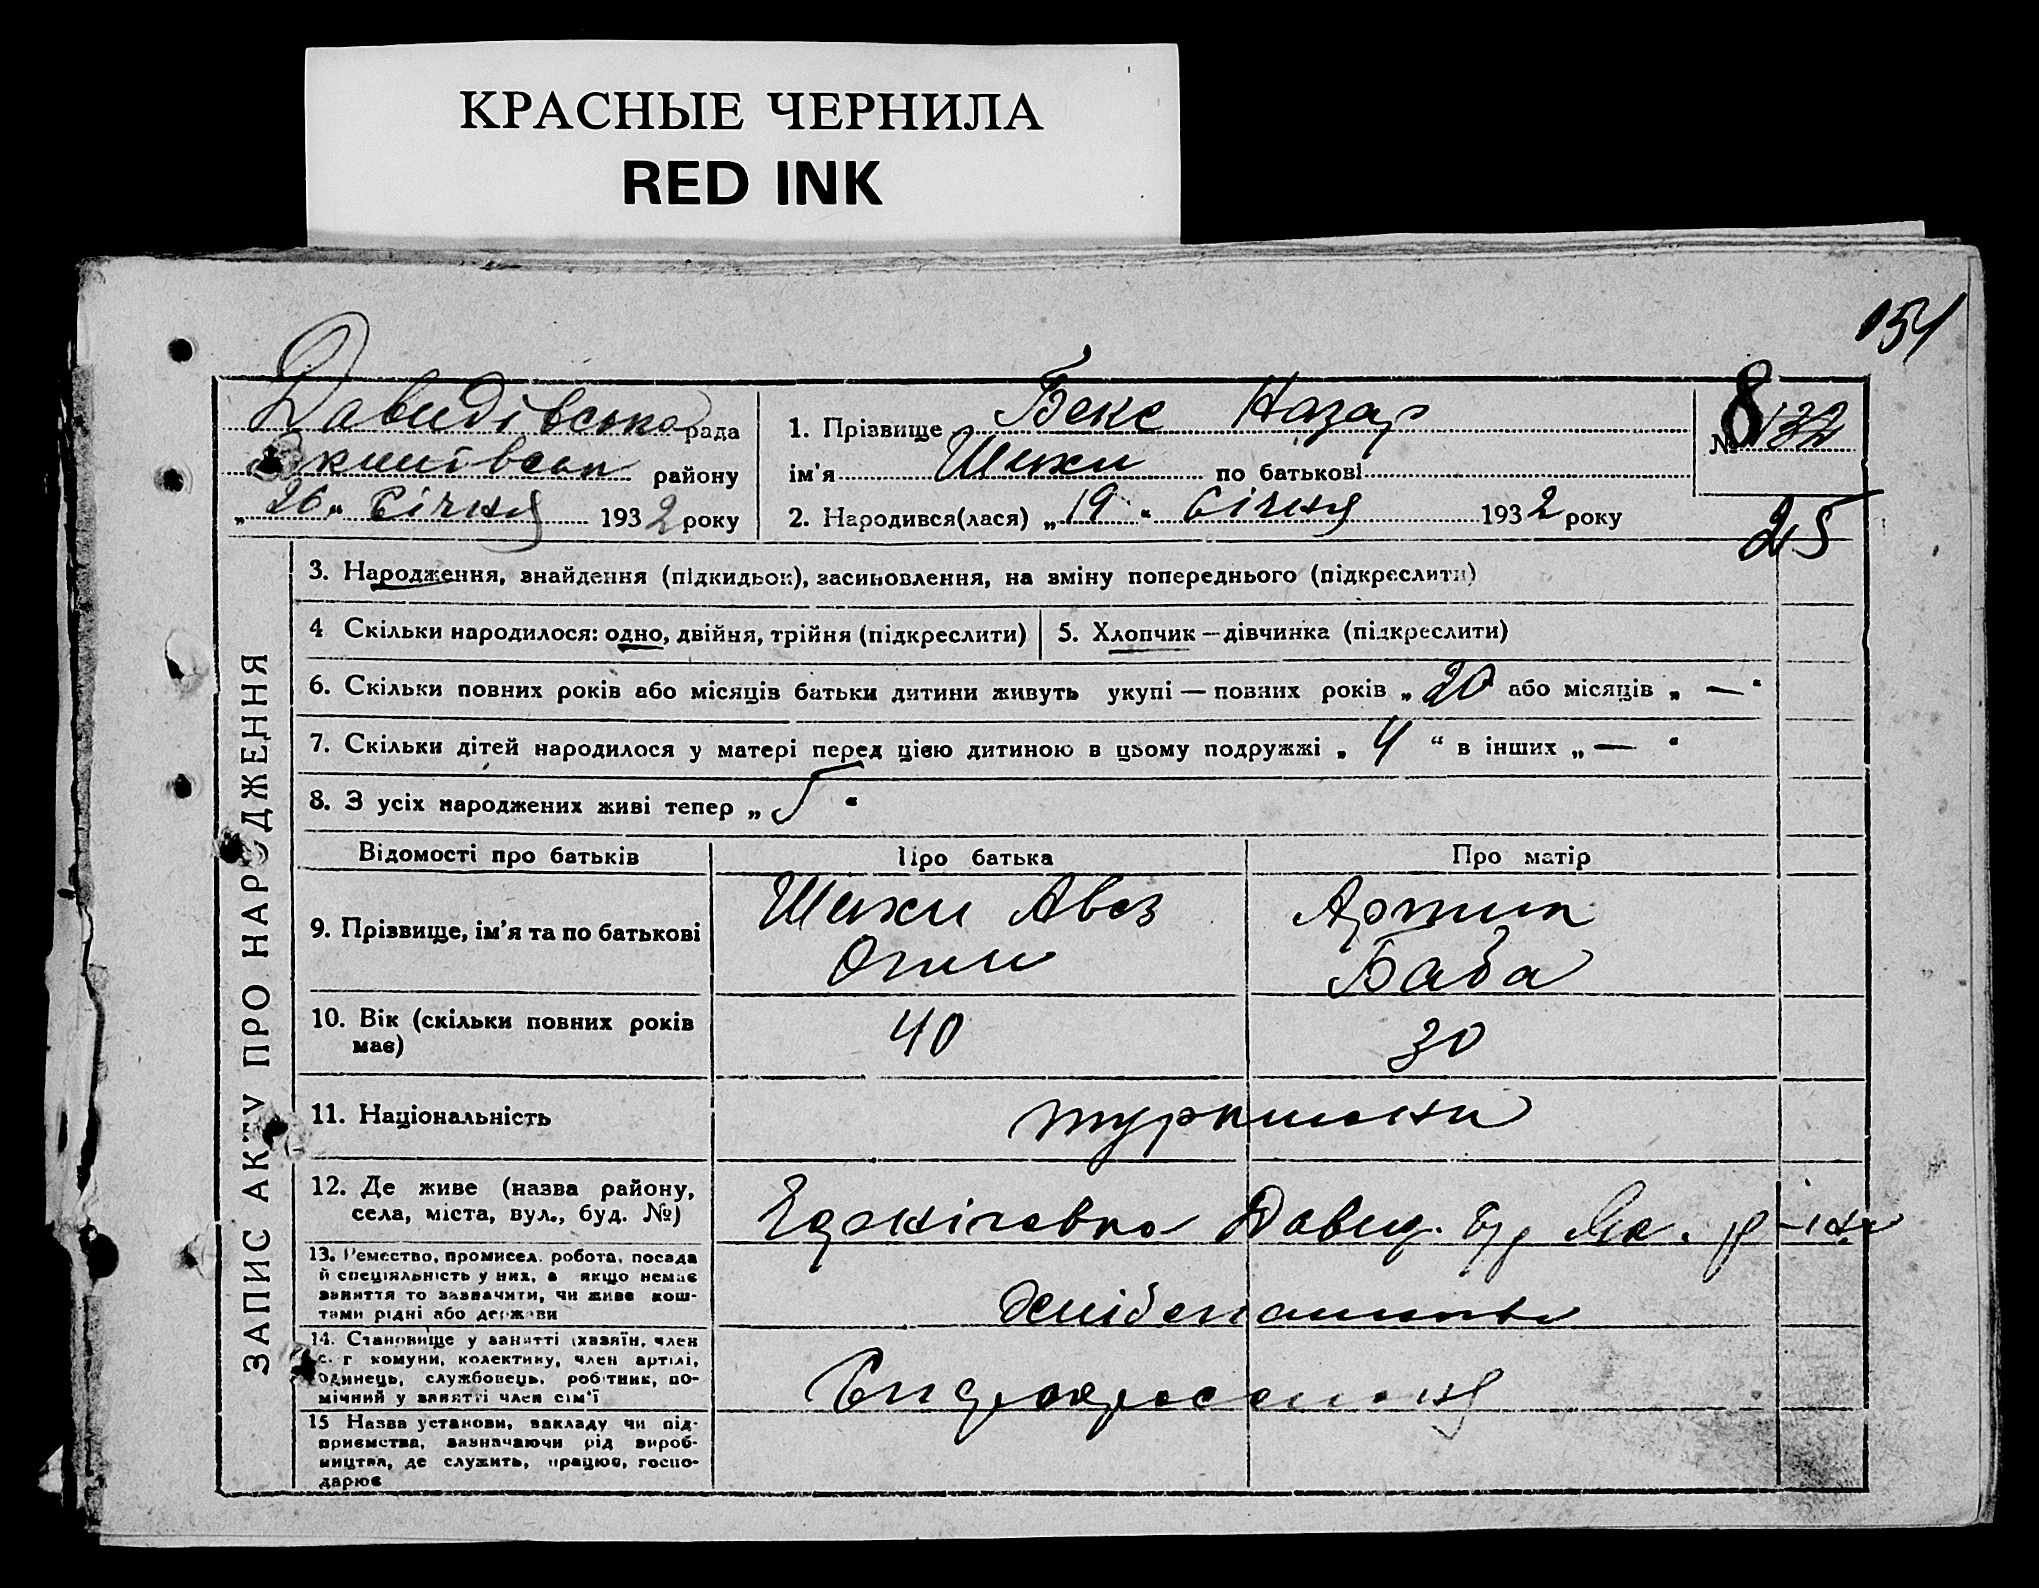 КРАСНЫЕ ЧЕРНИЛА
RED INK
154
Давидівська рада
Якимівськ району
„26“ Січня 1932 року
1. Прізвище Бекс Назар
ім'я Шихи по батькові
2. Народився(лася) „19“ Січня 1932 року
№ 8 132
25
ЗАПИС АКТУ ПРО НАРОДЖЕННЯ
3. Народження, знайдення (підкидьок), засиновлення, на зміну попереднього (підкреслити)
4 Скільки народилося: одно, двійня, трійня (підкреслити)
5. Хлопчик — дівчинка (підкреслити)
6. Скільки повних років або місяців батьки дитини живуть укупі — повних років „20 або місяців „ — “
7. Скільки дітей народилося у матері перед цією дитиною в цьому подружжі „ 4 “ в інших „ — “
8. З усіх народжених живі тепер „ 5 “
Відомості про батьків Про батька Про матір
9. Прізвище, ім'я та по батькові
Шихи Авез
Огли
Артик
Баба
10. Вік (скільки повних років
має)
40 30
11. Національність туркмени
12. Де живе (назва району,
села, міста, вул., буд. №)
Давид. Як. р-на
13. Ремество, промисел, робота, посада
й спеціяльність у них, а якщо немає
заняття то зазначити, чи живе кош-
тами рідні або держави
Хлібопашитво
14. Становище у занятті (хазяїн, член
с. г комуни, колективу, член артілі,
одинець, службовець, робітник, по-
мічний у занятті член сім'ї
15 Назва установи, закладу чи під-
приємства, зазначаючи рід вироб-
ництва, де служить, працює, госпо-
дарює